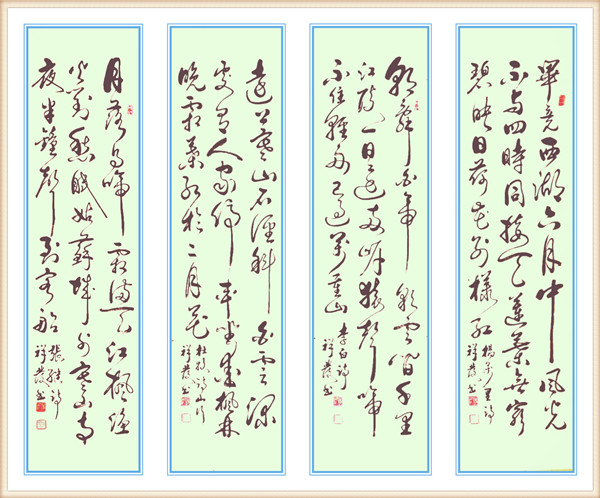 畢竟西湖六月中風光
不与四時同接天蓮葉無窮
碧映日荷花别樣红
楊萬里詩
祥发书
朝辞白帝彩云間千里
江陵一日还两岸猿聲啼
不住軽舟已過萬重山
李白詩
祥发书
遠上寒山石径斜白云深
处有人家停車坐爱楓林
晚霜葉红於二月花
杜牧詩山行
祥发书
月落烏啼霜满天江楓渔
火对愁眠姑蘇城外寒山寺
夜半鐘聲到客船
張継詩
祥发书